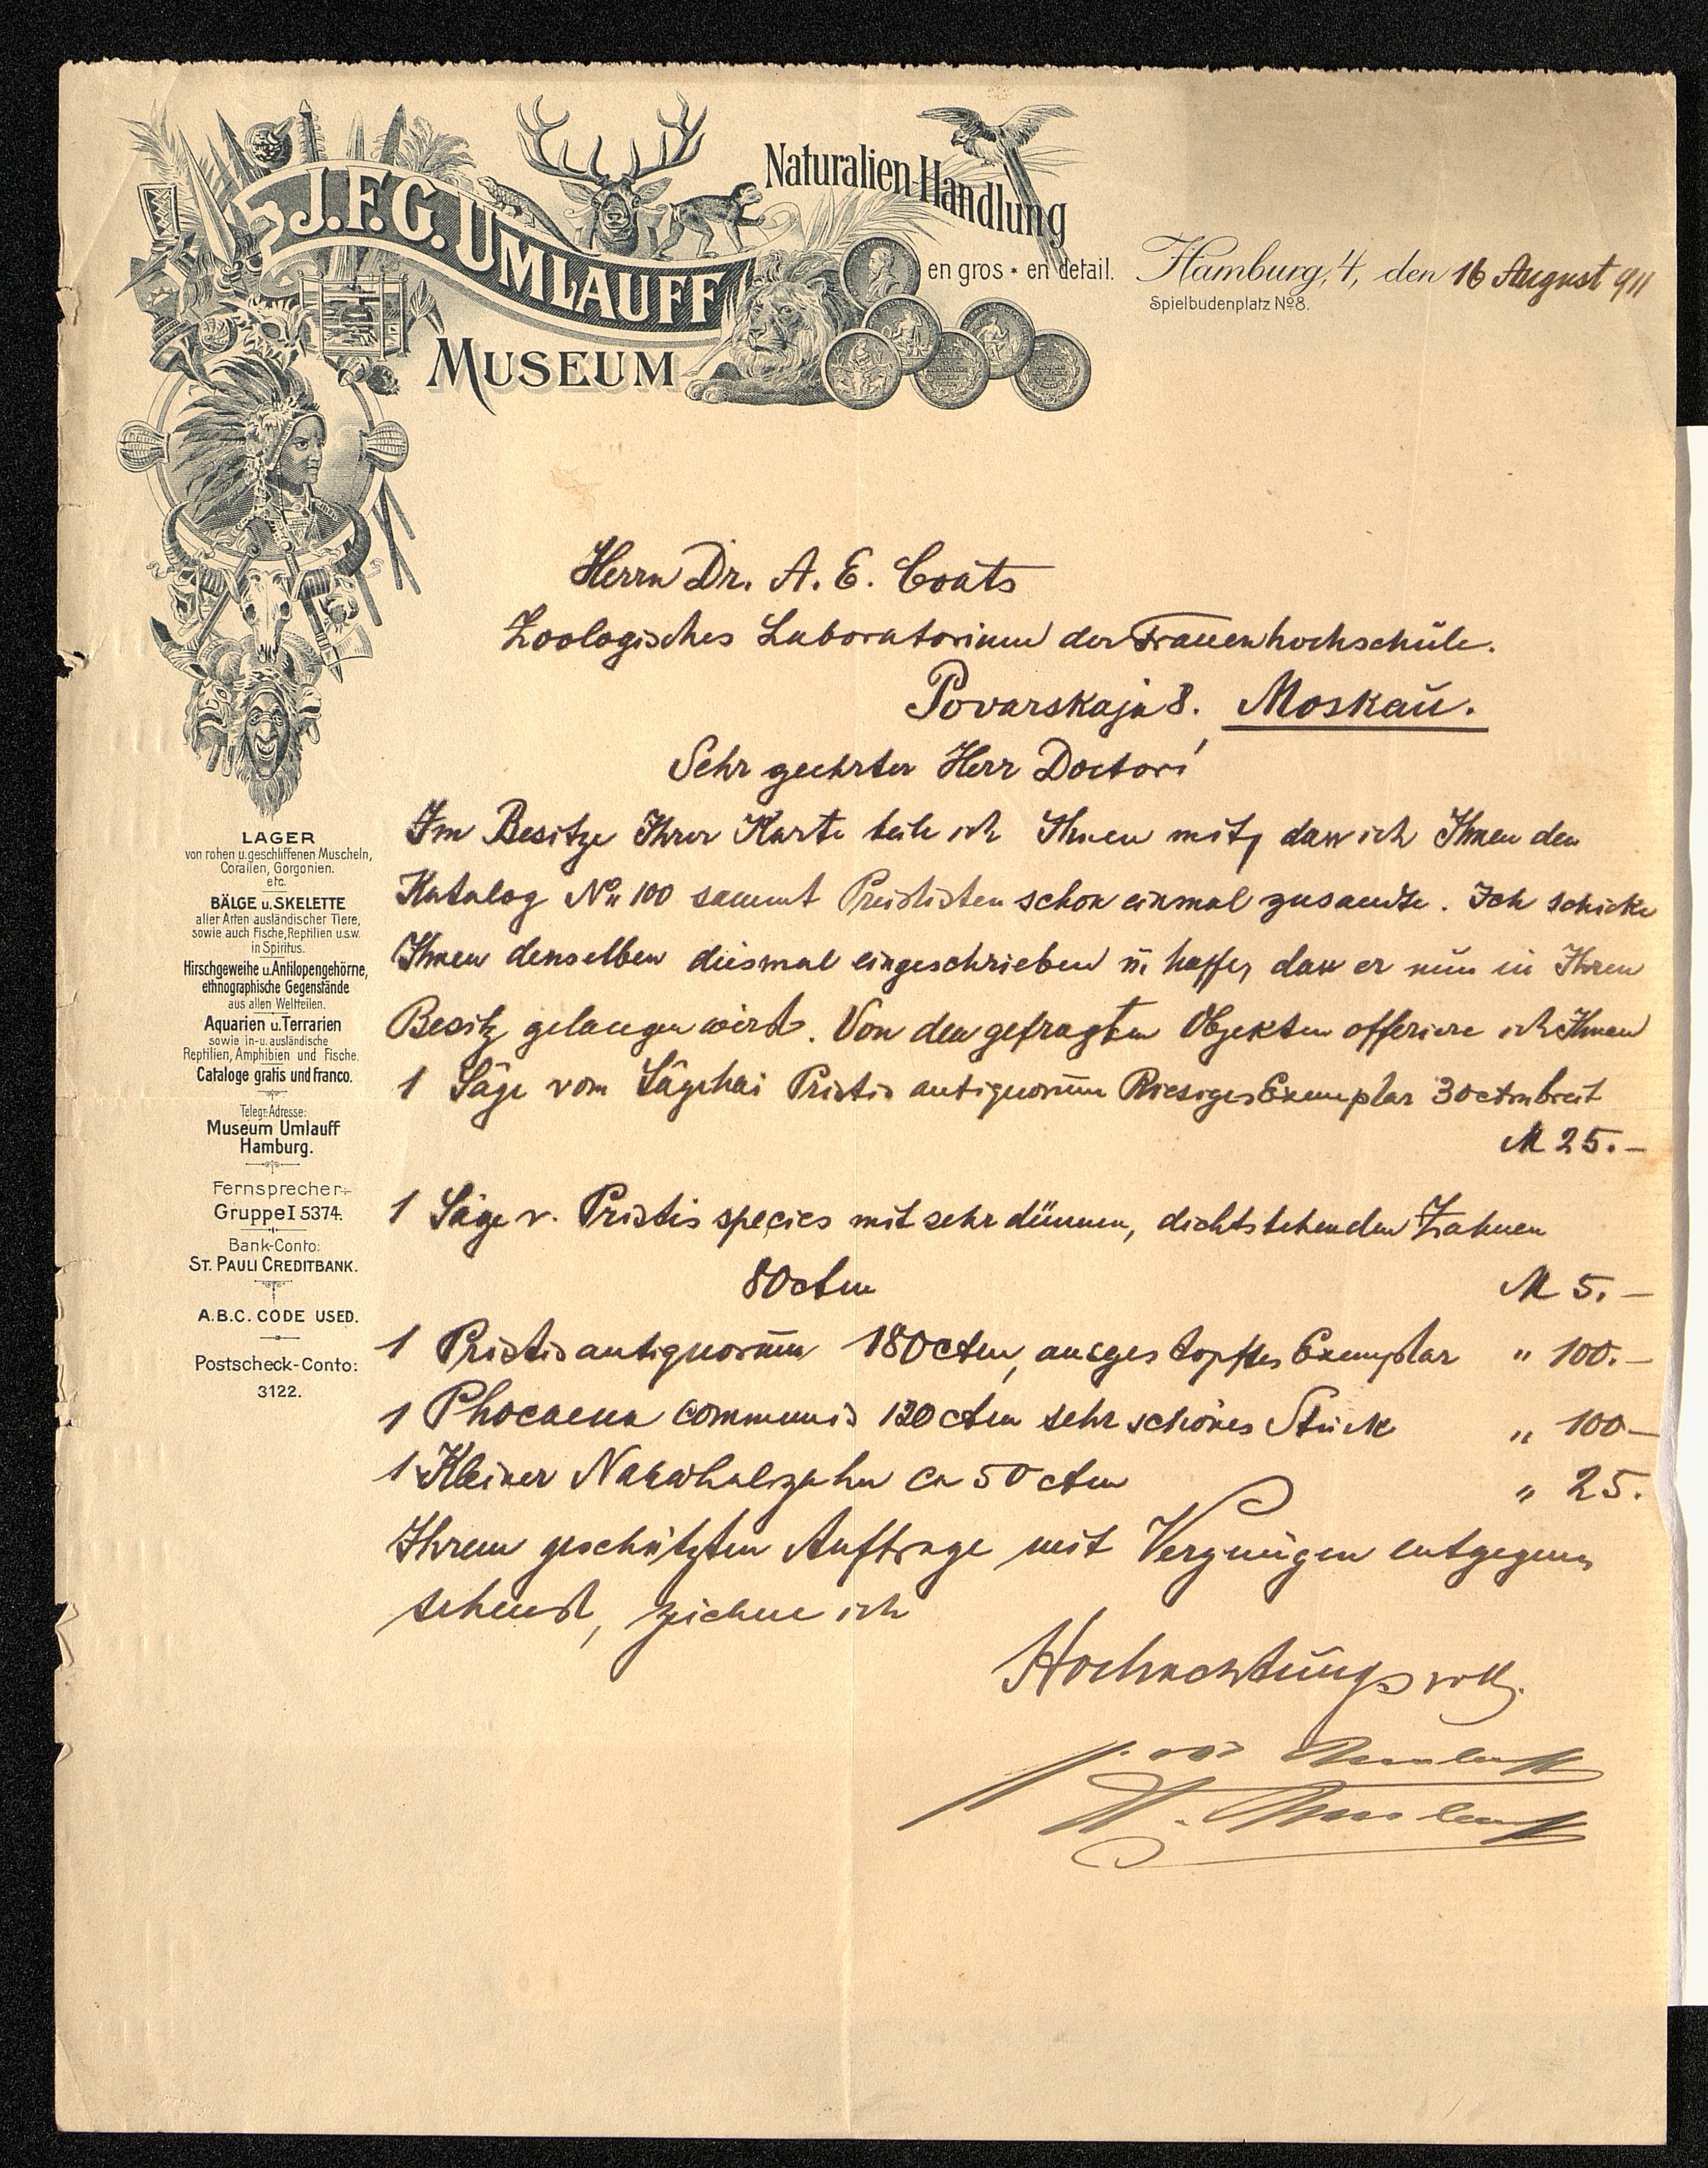 J.F.G. UMLAUFF
MUSEUM
Naturalien-Handlung
en gros * en detail.
Hamburg, 4, den 16 August 911
Spielbudenplatz No 8.
Herrn Dr. A. E. Coats
Zoologisches Laboratorium der Frauenhochschule.
Povarskaja 8. Moskau.
Sehr geehrter Herr Doctor!
Im Besitze Ihrer Karte teile ich Ihnen mit, dass ich Ihnen den
Katalog No 100 sammt Preislisten schon einmal zusandte. Ich schicke
Ihnen denselben diesmal eingeschrieben u. hoffe, dass er nun in Ihren
Besitz gelangen wird. Von den gefragten Objekten offeriere ich Ihnen
1 Säge vom Sägehai Pristis antiquorum Riesiges Exemplar 30 ctm breit
M 25.—
1 Säge v. Pristis species mit sehr dünnen, dichtstehenden Zähnen
80 ctm M 5.—
1 Pristis antiquorum 180 ctm, ausgestopftes Exemplar " 100.—
1 Phocaena communis 120 ctm sehr schönes Stück " 100—
1 Kleiner Narwhalzahn ca 50 ctm " 25.
Ihrem geschätzten Auftrage mit Vergnügen entgegen
sehend, zeichne ich
Hochachtungsvoll.
Umlauff
Umlauff
LAGER
von rohen u. geschliffenen Muscheln,
Corallen, Gorgonien.
etc.
BÄLGE u. SKELETTE
aller Arten ausländischer Tiere,
sowie auch Fische, Reptilien u.s.w.
in Spiritus.
Hirschgeweihe u. Antilopengehörne,
ethnographische Gegenstände
aus allen Weltteilen.
Aquarien u. Terrarien
sowie in- u. ausländische
Reptilien, Amphibien und Fische.
Cataloge gratis und franco.
Telegr. Adresse:
Museum Umlauff
Hamburg.
Fernsprecher:
Gruppe I 5374.
Bank-Conto:
ST. PAULI CREDITBANK.
A.B.C. CODE USED.
Postscheck-Conto:
3122.